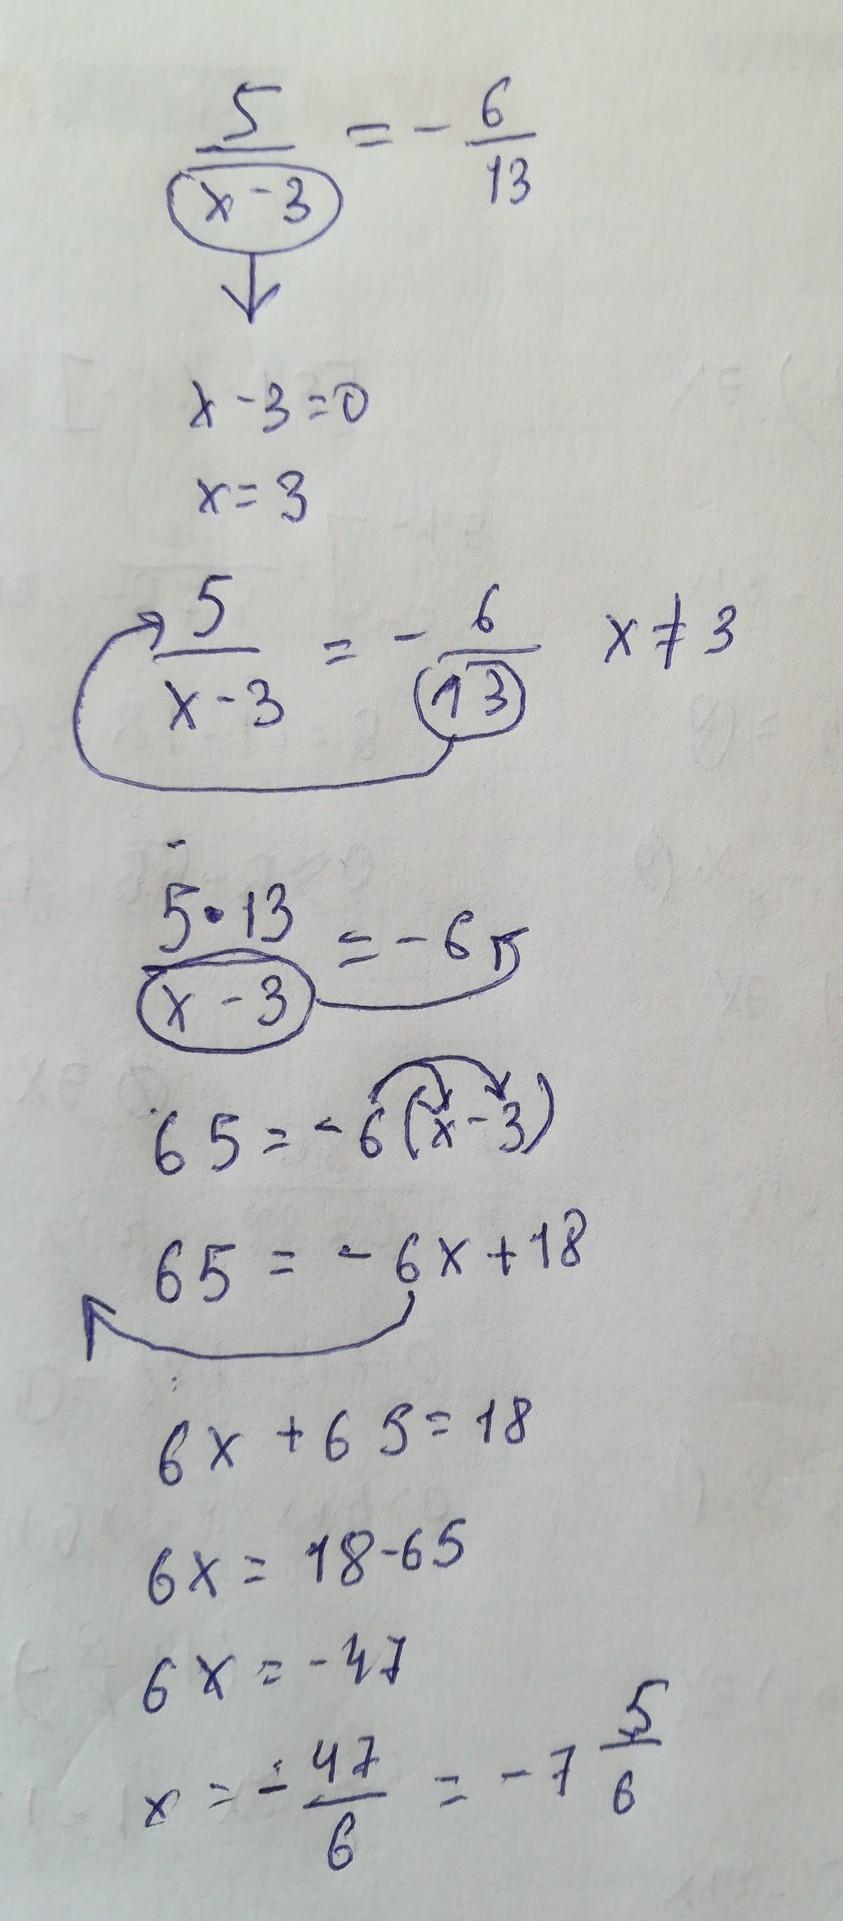 5/(x-3) = -6/13
x-3=0
x=3
5/(x-3) = -6/13 x≠3
5•13/(x-3) = -6
65=-6(x-3)
65=-6x+18
6x+65=18
6x=18-65
6x=-47
x=-47/6=-7 5/6